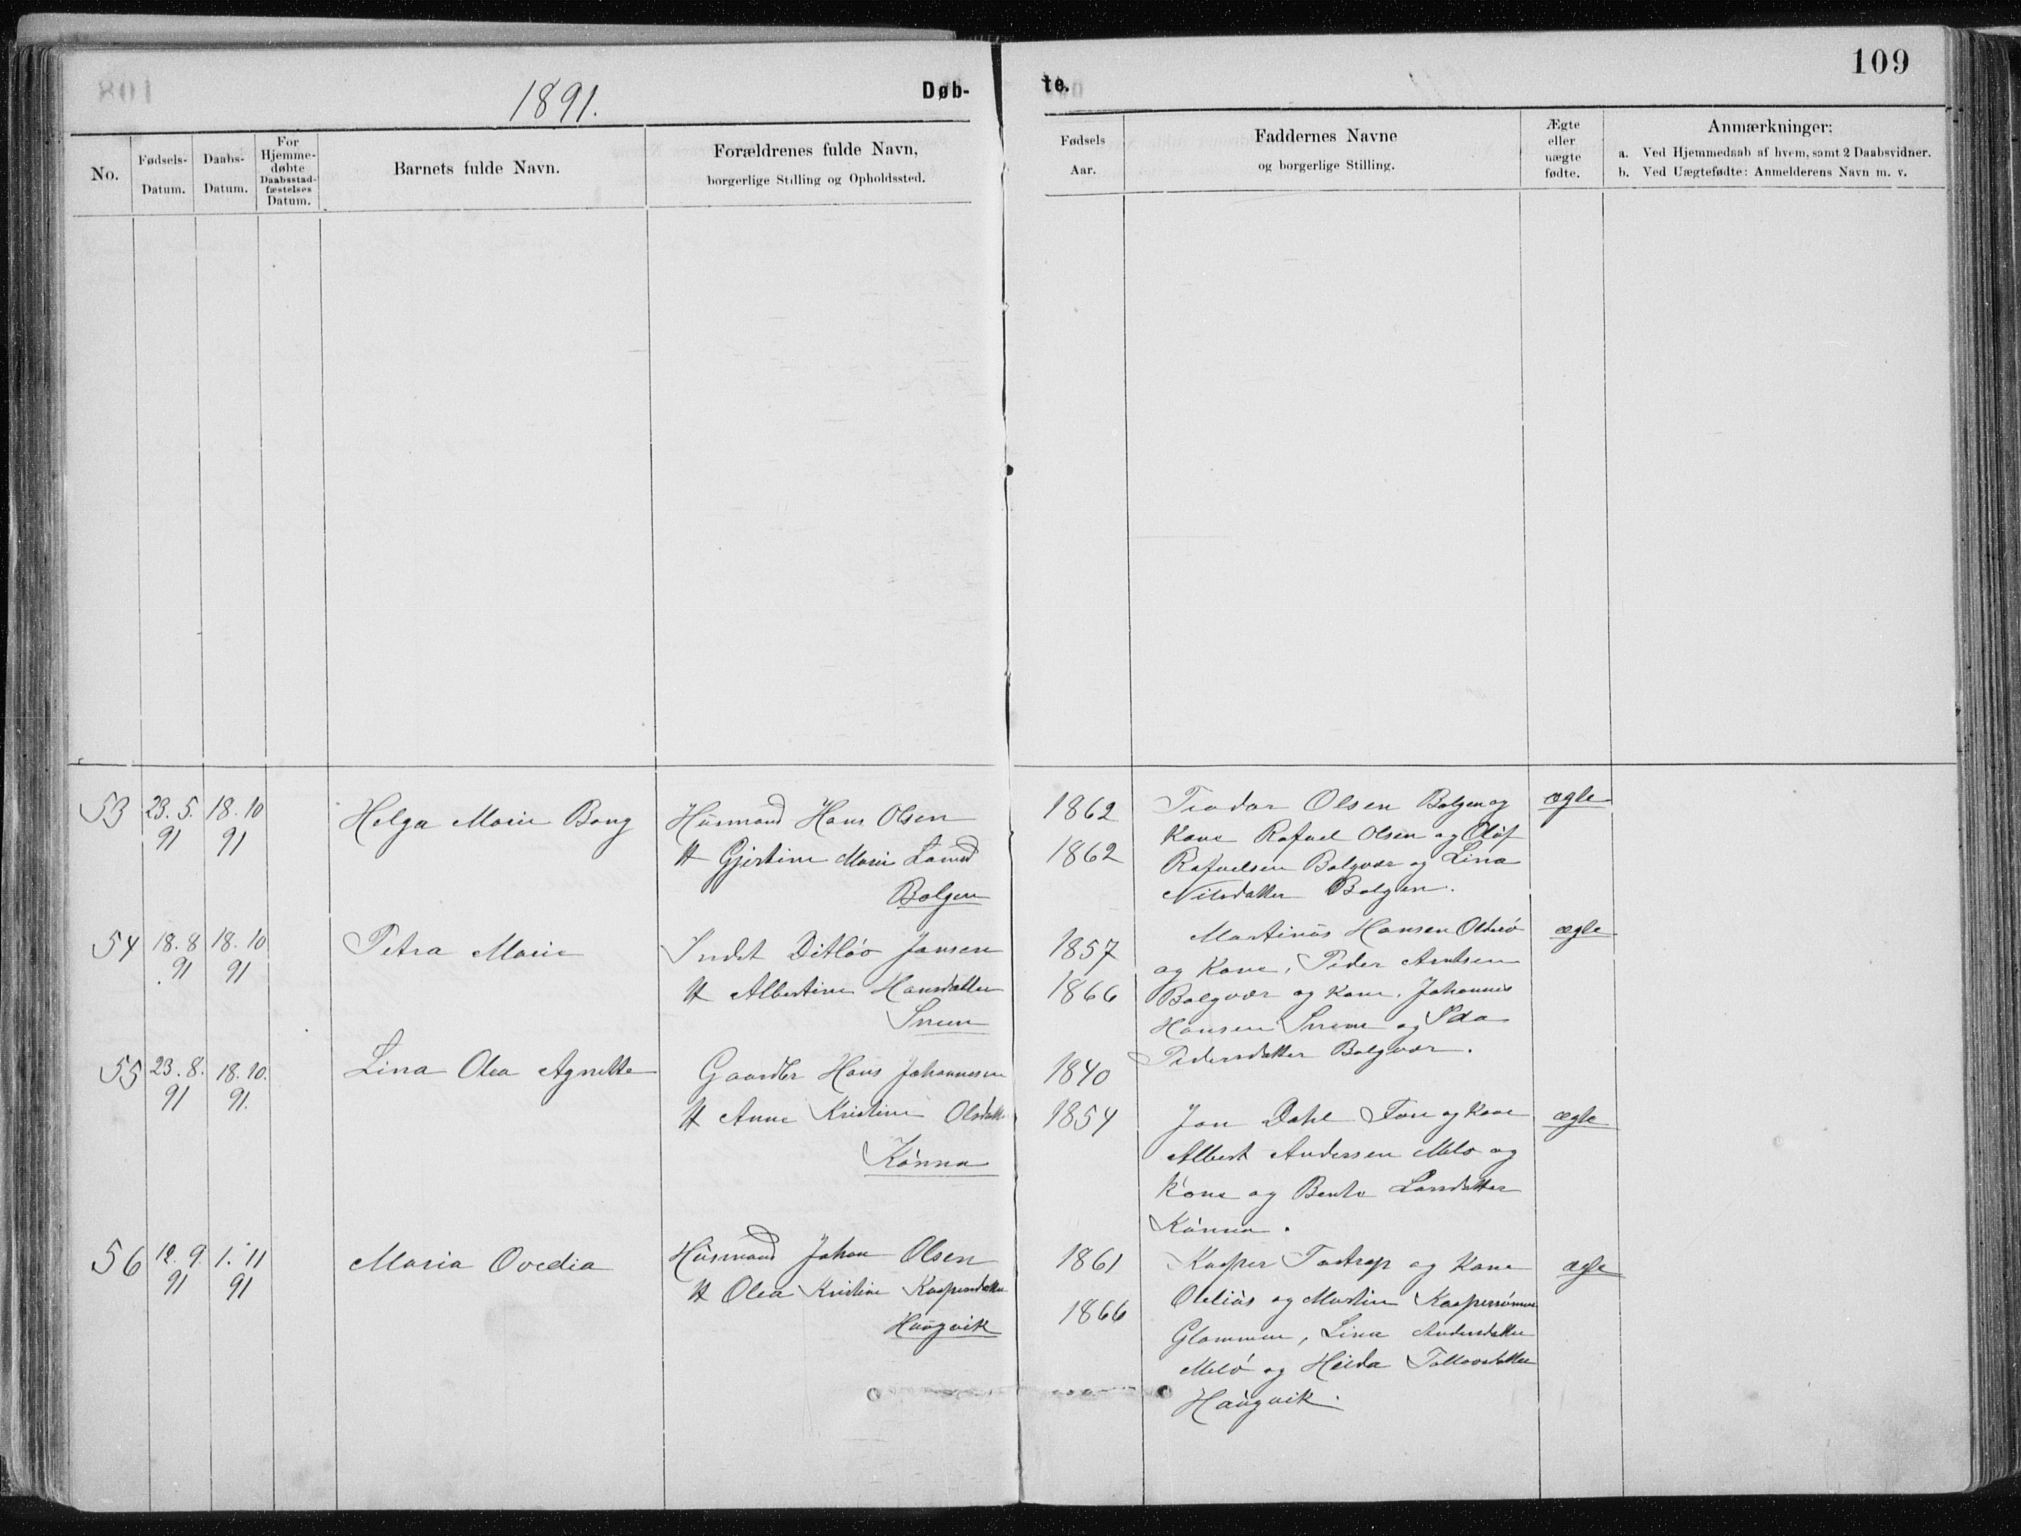 109
1891.
Døb-
te.
No.
Fødsels-
Datum.
Daabs-
Datum.
For
Hjemme-
døbte
Daabsstad-
fæstelses
Datum.
Barnets fulde Navn.
Forældrenes fulde Navn,
borgerlige Stilling og Opholdssted.
Fødsels
Aar.
Faddernes Navne
og borgerlige Stilling.
Ægte
eller
uægte
fødte.
Anmærkninger:
a. Ved Hjemmedaab af hvem, samt 2 Daabsvidner.
b. Ved Uægtefødte: Anmelderens Navn m. v.
53
23. 5.
91
18. 10
91
Helga Marie Bang
Husmand Hans Olsen
H Gjertine Marie
Bolgen
1862
1862
Teodor Olsen Bolgen og
Kone Rafael Olsen og Oluf
Rafaelsen Bolgvær og Lina
Nilsdatter Bolgen.
ægte
54
18. 8
91
18. 10
91
Petra Marie
Inds Ditløv Jansen
H Albertine Hansdatter
Sneen
1857
1866
Martinus Hansen
og Kone, Peder Arntsen
Bolgvær og Kone, Johannes
Hansen og Ida
Pedersdatter Bolgvær.
ægte
55
23. 8.
91
18. 10.
91.
Lina Olea Agnette
Gaardbr Hans Johannesen
H Anne Kristine Olsdatt
Kønna
1840
1854
Jon Dahl Fore og Kone
Albert Andersen Melø og
Kone og Bente Larsdatter
Kønna.
ægte
56
91
1. 11
91
Maria Ovedia
Husmand Johan Olsen
H Olea Kristine Kaspersdatter
Haugvik
1861
1866
Kasper Tostrup og Kone
Otelius og Martin
Glommen, Lina Andersdatter
Melø og Heida Tollevsdatter
Haugvik.
ægte